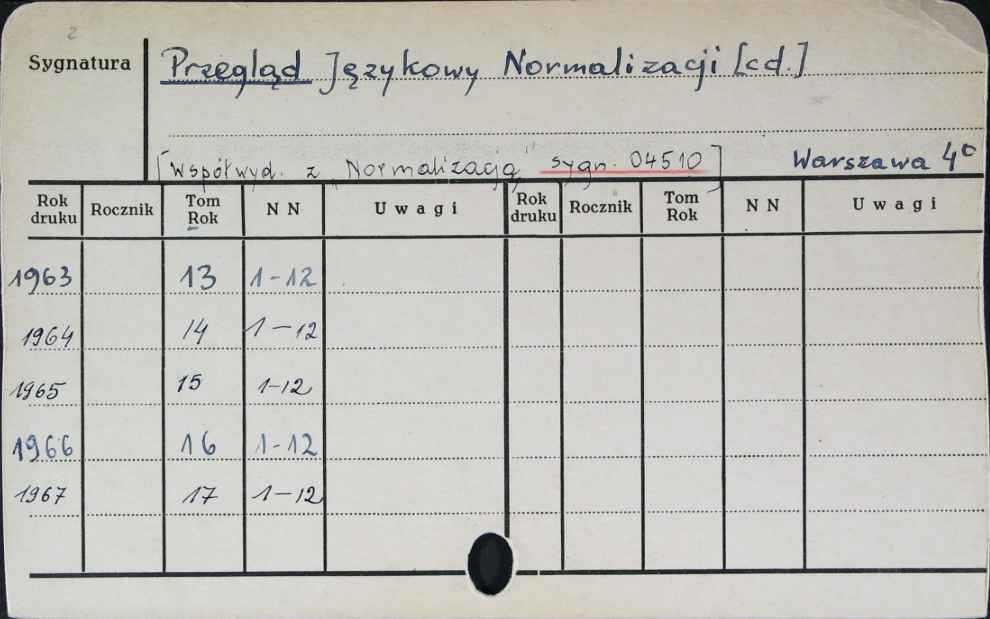 2
Sygnatura
Przegląd Językowy Normalizacji [cd.]
[Współwyd. z „Normalizacją" sygn. 04510] Warszawa 4°
Rok druku Rocznik Tom Rok N N Uwagi Rok druku Rocznik Tom Rok N N Uwagi
1963 13 1-12
1964 14 1-12
1965 15 1-12
1966 16 1-12
1967 17 1-12